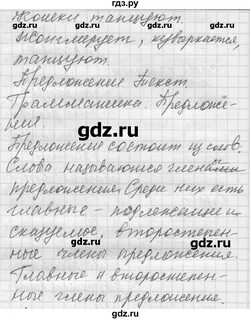 гдз.ру
Кошки танцуют.
Жонглерует, кувыркается,
танцуют.
gdz.ru
gdz.ru
Предложения Текст.
Грамматика. Предложе-
ния.
gdz.ru
gdz.ru
Предложения состоит из слов.
Слова называются членами
предложения. Среди них есть
gdz.ru
gdz.ru
главные - подлежащее и
сказуемое, второстепен-
ные члены предложение.
gdz.ru
gdz.ru
Главные и второстепен-
ные члены предложение.
gdz.ru